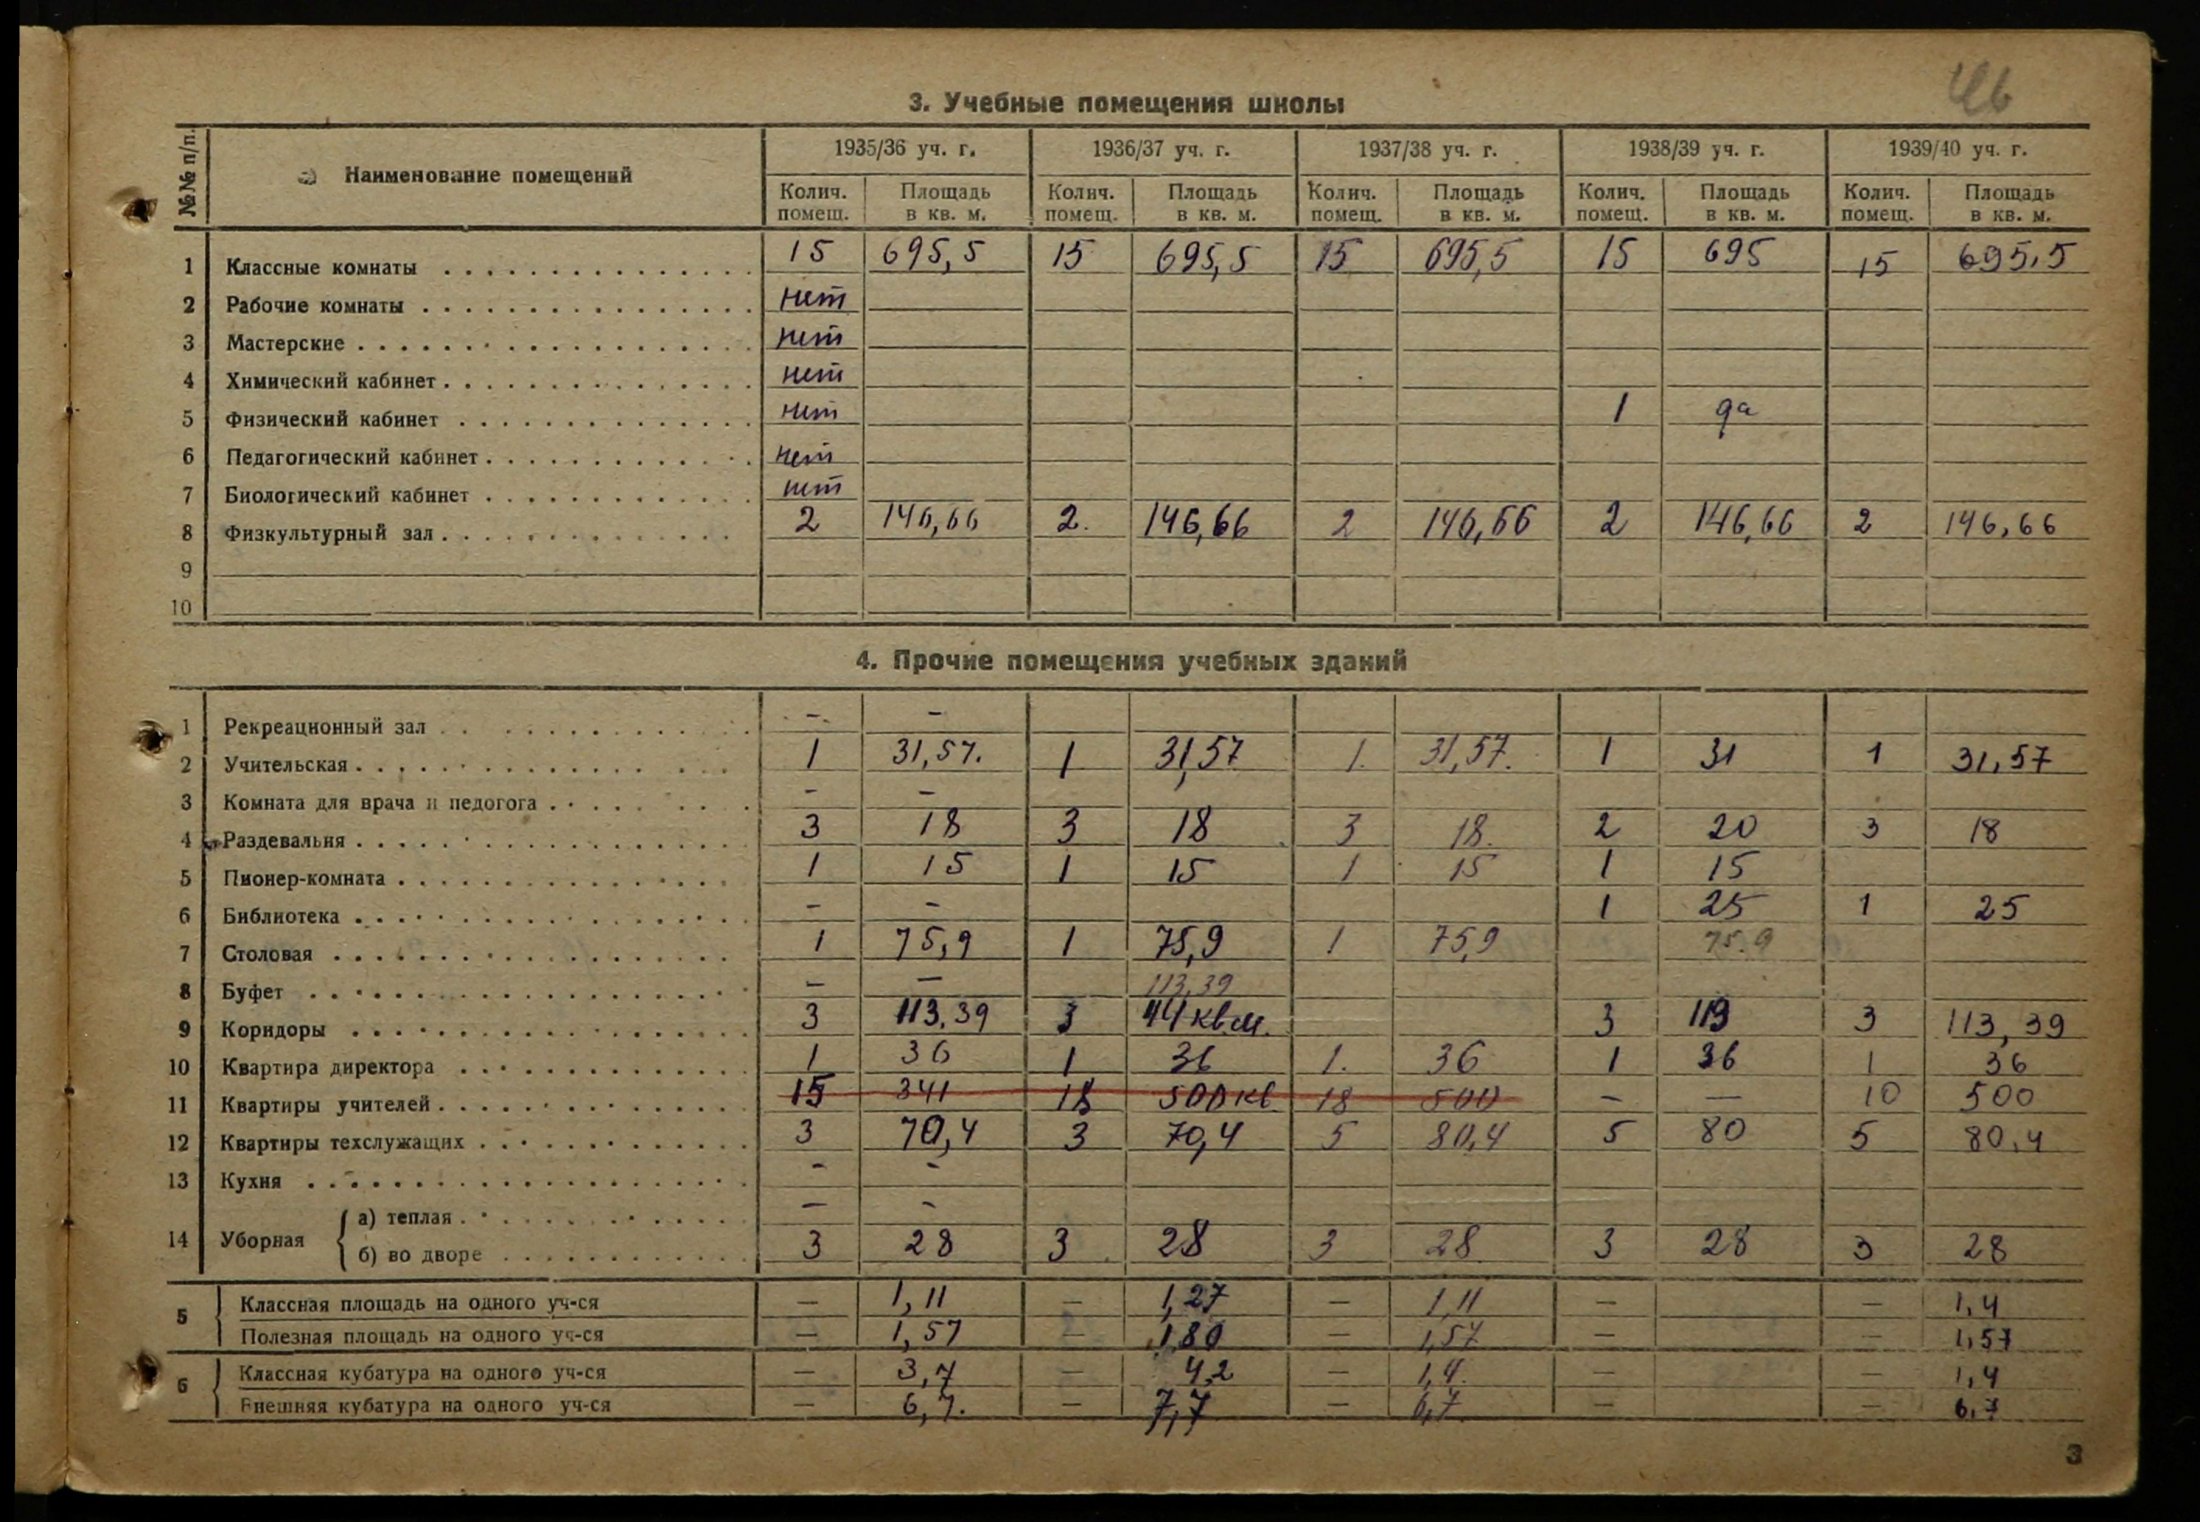 3. Учебные помещения школы
№№ п/п. Наименование помещений 1935/36 уч. г. 1936/37 уч. г. 1937/38 уч. г. 1938/39 уч. г. 1939/40 уч. г.
Колич. помещ. Площадь в кв. м. Колич. помещ. Площадь в кв. м. Колич. помещ. Площадь в кв. м. Колич. помещ. Площадь в кв. м. Колич. помещ. Площадь в кв. м.
1 Классные комнаты 15 695,5 15 695,5 15 695,5 15 695 15 695,5
2 Рабочие комнаты нет
3 Мастерские нет
4 Химический кабинет нет
5 Физический кабинет нет 1 да
6 Педагогический кабинет нет
7 Биологический кабинет нет
8 Физкультурный зал 2 146,66 2. 146,66 2 146,66 2 146,66 2 146,66
9
10
4. Прочие помещения учебных зданий
1 Рекреационный зал – –
2 Учительская 1 31,57. 1 31,57 1. 31,57. 1 31 1 31,57
3 Комната для врача и педогога – –
4 Раздевальня 3 18 3 18 3 18. 2 20 3 18
5 Пионер-комната 1 15 1 15 1 15 1 15
6 Библиотека – – 1 25 1 25
7 Столовая 1 75,9 1 75,9 1 75,9 75.9
8 Буфет – – 113,39
9 Коридоры 3 113,39 3 44 кв.м. 3 113 3 113,39
10 Квартира директора 1 36 1 36 1. 36 1 36 1 36
11 Квартиры учителей 15 341 18 500 кв 18 500 – – 10 500
12 Квартиры техслужащих 3 70,4 3 70,4 5 80,4 5 80 5 80,4
13 Кухня – –
14 Уборная а) теплая – –
б) во дворе 3 28 3 28 3 28 3 28 3 28
5 Классная площадь на одного уч-ся – 1,11 – 1,27 – 1,11 – – 1,4
Полезная площадь на одного уч-ся – 1,57 – 1,80 – 1,57 – – 1,57
6 Классная кубатура на одного уч-ся – 3,7 – 4,2 – 1,4. – – 1,4
Внешняя кубатура на одного уч-ся – 6,7. – 7,7 – 6,7 – – 6,7
3